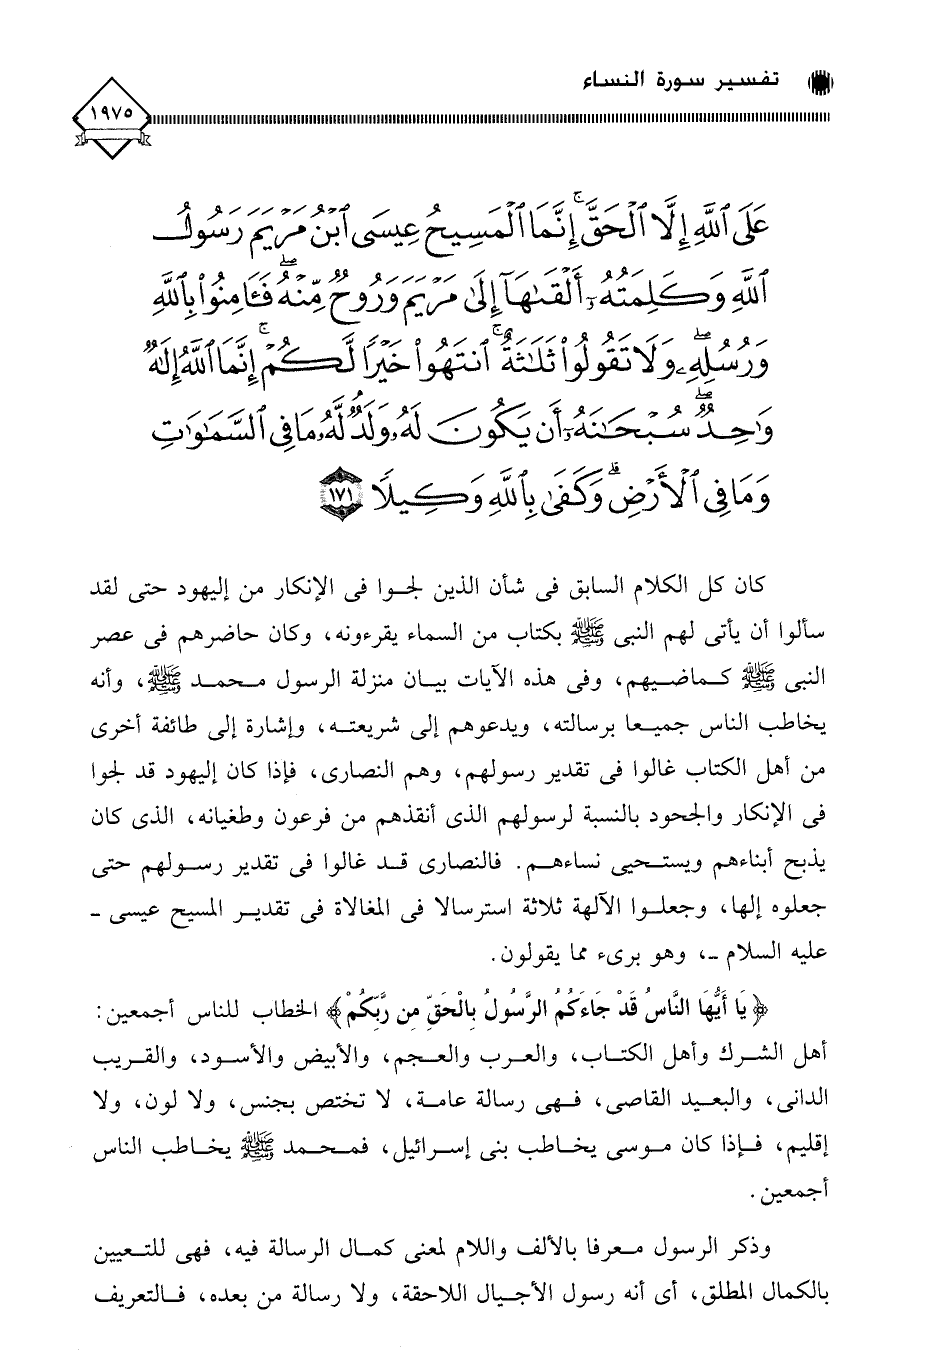 تفسير سورة النساء
١٩٧٥
عَلَى ٱللَّهِ إِلَّا ٱلْحَقَّ ۚ إِنَّمَا ٱلْمَسِيحُ عِيسَى ٱبْنُ مَرْيَمَ رَسُولُ
ٱللَّهِ وَكَلِمَتُهُۥٓ أَلْقَىٰهَآ إِلَىٰ مَرْيَمَ وَرُوحٌ مِّنْهُ ۖ فَـَٔامِنُوا۟ بِٱللَّهِ
وَرُسُلِهِۦ ۖ وَلَا تَقُولُوا۟ ثَلَـٰثَةٌ ۚ ٱنتَهُوا۟ خَيْرًا لَّكُمْ ۚ إِنَّمَا ٱللَّهُ إِلَـٰهٌ
وَٰحِدٌ ۖ سُبْحَـٰنَهُۥٓ أَن يَكُونَ لَهُۥ وَلَدٌ ۘ لَّهُۥ مَا فِى ٱلسَّمَـٰوَٰتِ
وَمَا فِى ٱلْأَرْضِ ۗ وَكَفَىٰ بِٱللَّهِ وَكِيلًا ١٧١
كان كل الكلام السابق فى شأن الذين لجوا فى الإنكار من إليهود حتى لقد
سألوا أن يأتى لهم النبى ﷺ بكتاب من السماء يقرءونه، وكان حاضرهم فى عصر
النبى ﷺ كماضيهم، وفى هذه الآيات بيان منزلة الرسول محمد ﷺ، وأنه
يخاطب الناس جميعا برسالته، ويدعوهم إلى شريعته، وإشارة إلى طائفة أخرى
من أهل الكتاب غالوا فى تقدير رسولهم، وهم النصارى، فإذا كان إليهود قد لجوا
فى الإنكار والجحود بالنسبة لرسولهم الذى أنقذهم من فرعون وطغيانه، الذى كان
يذبح أبناءهم ويستحيى نساءهم. فالنصارى قد غالوا فى تقدير رسولهم حتى
جعلوه إلها، وجعلوا الآلهة ثلاثة استرسالا فى المغالاة فى تقدير المسيح عيسى -
عليه السلام -، وهو برىء مما يقولون.
﴿يَا أَيُّهَا النَّاسُ قَدْ جَاءَكُمُ الرَّسُولُ بِالْحَقِّ مِن رَّبِّكُمْ﴾ الخطاب للناس أجمعين:
أهل الشرك وأهل الكتاب، والعرب والعجم، والأبيض والأسود، والقريب
الدانى، والبعيد القاصى، فهى رسالة عامة، لا تختص بجنس، ولا لون، ولا
إقليم، فإذا كان موسى يخاطب بنى إسرائيل، فمحمد ﷺ يخاطب الناس
أجمعين.
وذكر الرسول معرفا بالألف واللام لمعنى كمال الرسالة فيه، فهى للتعيين
بالكمال المطلق، أى أنه رسول الأجيال اللاحقة، ولا رسالة من بعده، فالتعريف